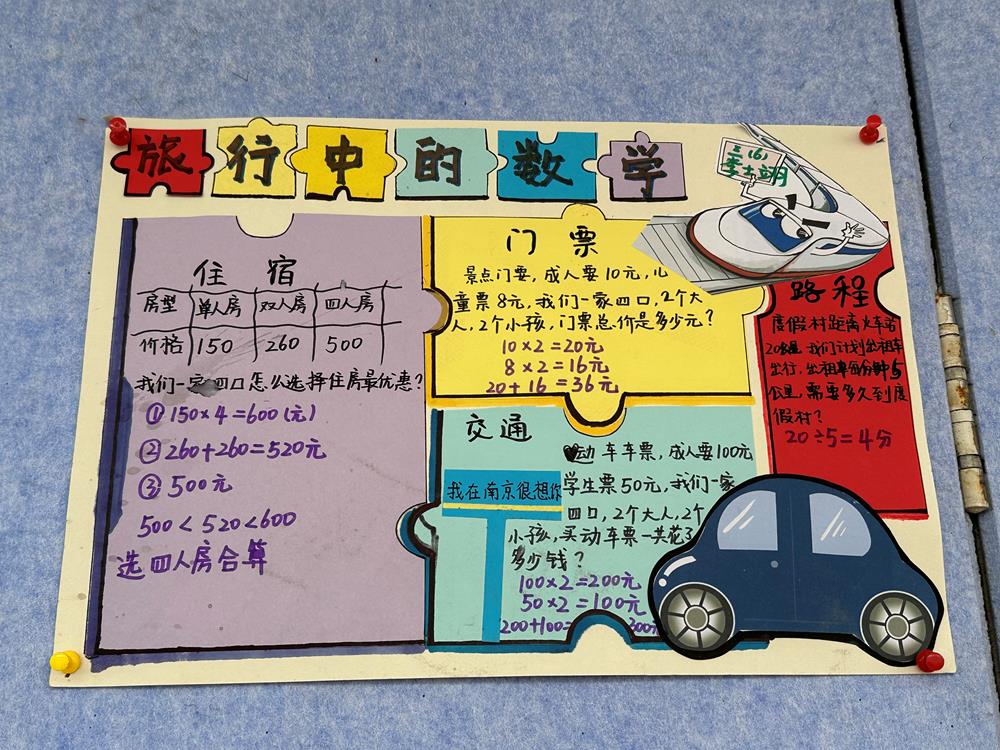 旅行中的数学
三(6)
李士翊
住宿
房型 单人房 双人房 四人房
价格 150 260 500
我们一家四口怎么选择住房最优惠?
①150×4=600(元)
②260+260=520元
③500元
500<520<600
选四人房合算
门票
景点门要,成人要10元,儿
童票8元,我们一家四口,2个大
人,2个小孩,门票总价是多少元?
10×2=20元
8×2=16元
20+16=36元
交通
动车车票,成人要100元
学生票50元,我们一家
四口,2个大人,2个
小孩,买动车票一共花了
多少钱?
100×2=200元
50×2=100元
200+100= 300元
我在南京很想你
路程
度假村距离火车站
20公里,我们计划出租车
出行,出租车每分钟5
公里,需要多久到度
假村?
20÷5=4分